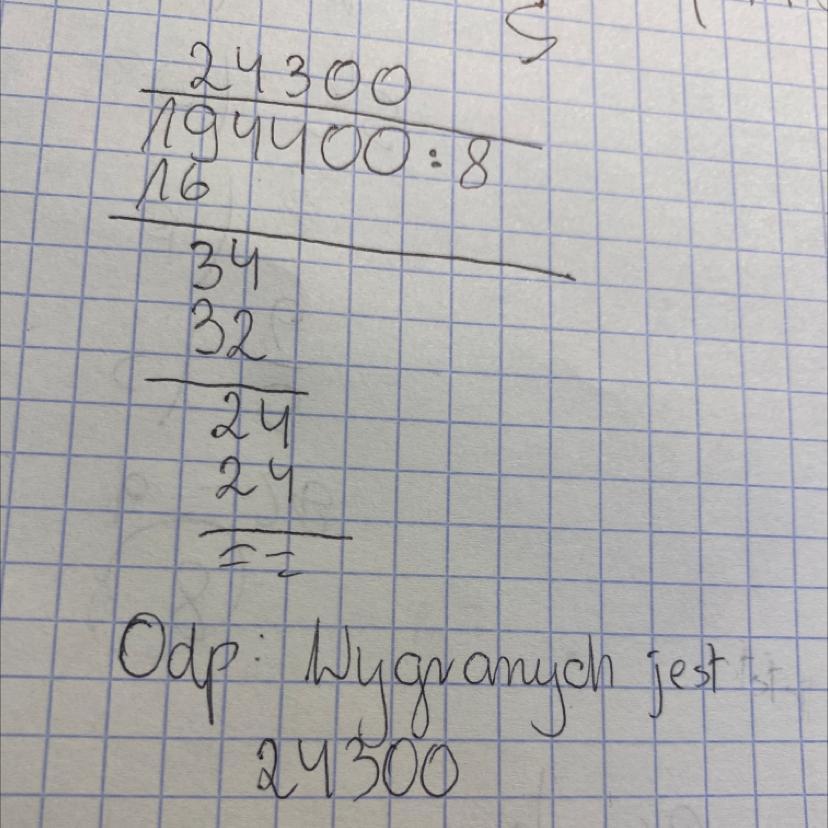 24300
194400:8
16
34
32
24
24
==
Odp: Wygranych jest
24300